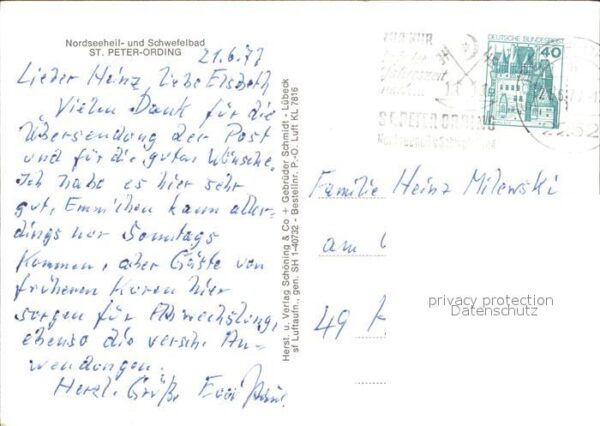 Nordseeheil- und Schwefelbad
ST. PETER-ORDING
21.6.77
Lieber Heinz, liebe Elsbeth
Vielen Dank für die
Übersendung der Post
und für die guten Wünsche.
Ich habe es hier sehr
gut, Emmichen kann aller-
dings nur Sonntags
kommen, aber Gäste von
früheren Kuren hier
sorgen für Abwechslung,
ebenso die versch. An-
wendungen.
Herzl. Grüße
Herst. u. Verlag Schöning & Co + Gebrüder Schmidt - Lübeck
sf Luftaufn., gen. SH 1-40732 - Bestellnr. P.-O. Luft KL 7816
ZUR KUR
ST. PETER-ORDING
DEUTSCHE BUNDESPOST
40
Familie Heinz Milewski
am
49
privacy protection
Datenschutz